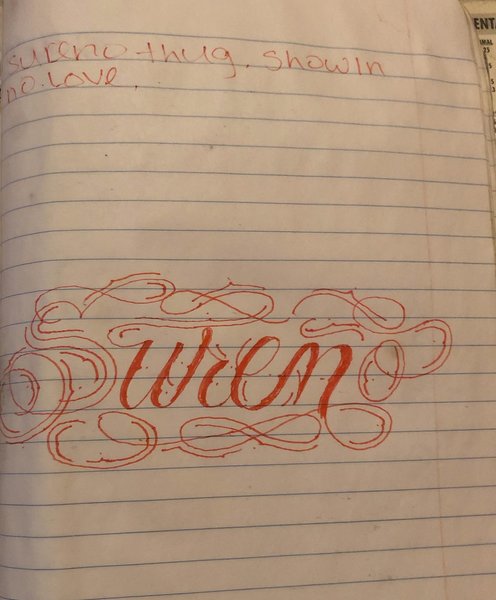 sureno thug. showin
no. love.
Sureno
ENTA